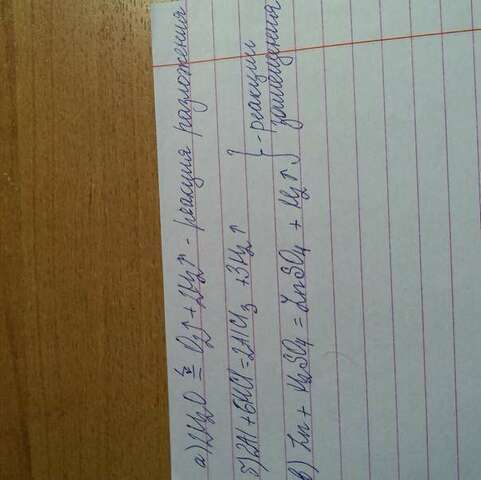 а) 2H₂O = O₂↑ + 2H₂↑ - реакция разложения
б) 2Al + 6HCl = 2AlCl₃ + 3H₂↑ } - реакции
в) Zn + H₂SO₄ = ZnSO₄ + H₂↑ замещения